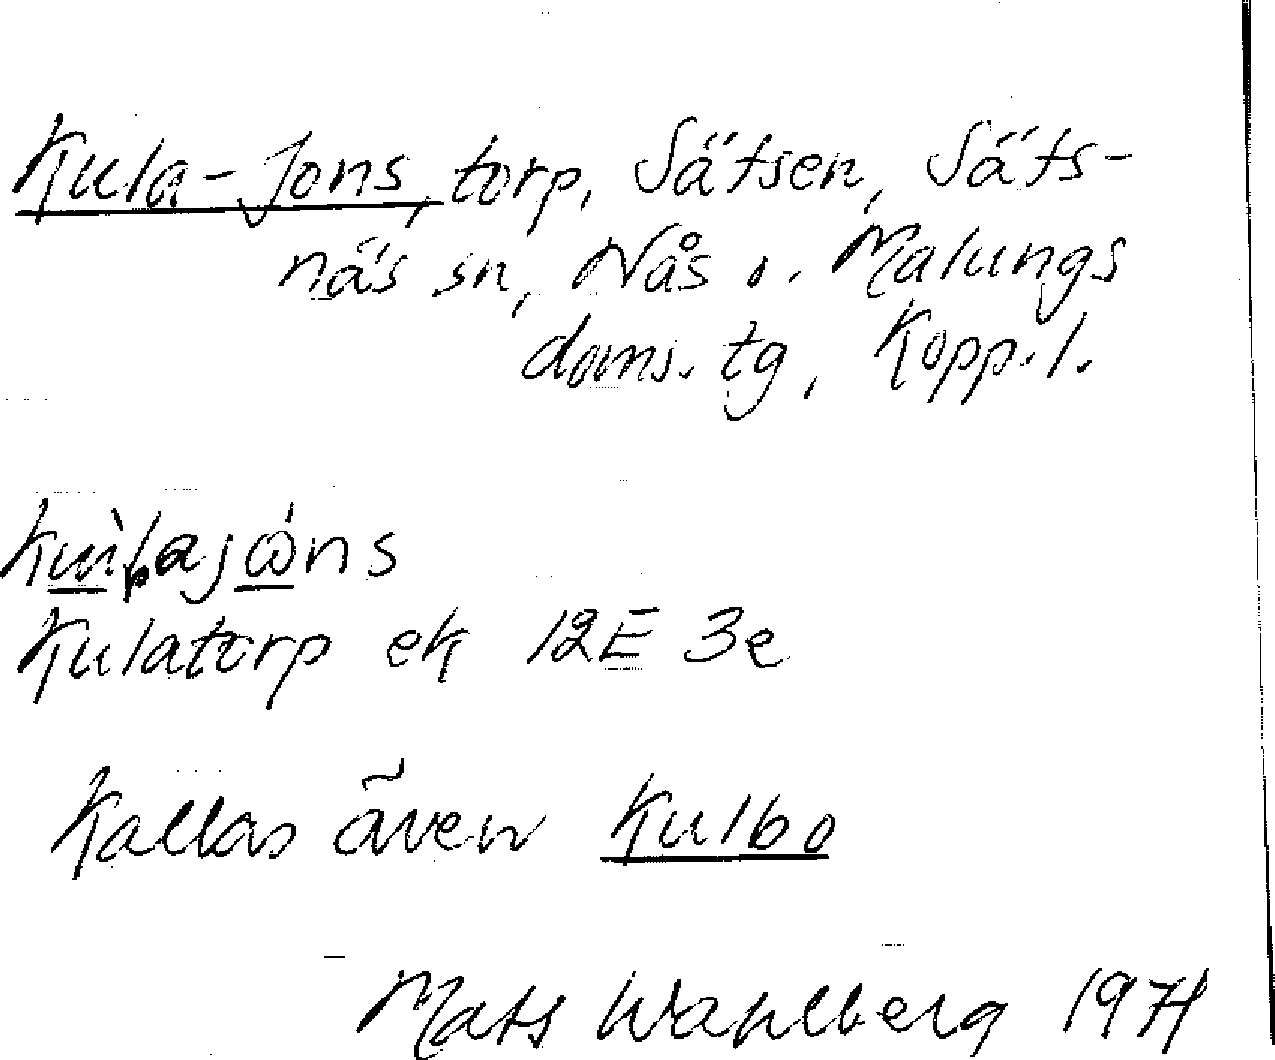 Kula-Jons, torp, Sätsen, Säts-
näs sn, Nås o. Malungs
doms. tg, Kopp. l.
Kulatorp ek 12E 3e
Kallas även Kulbo
Mats Wahlberg 1971